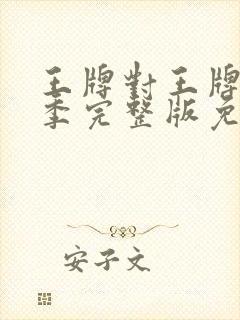 王牌對王牌
季完整版免
安子文